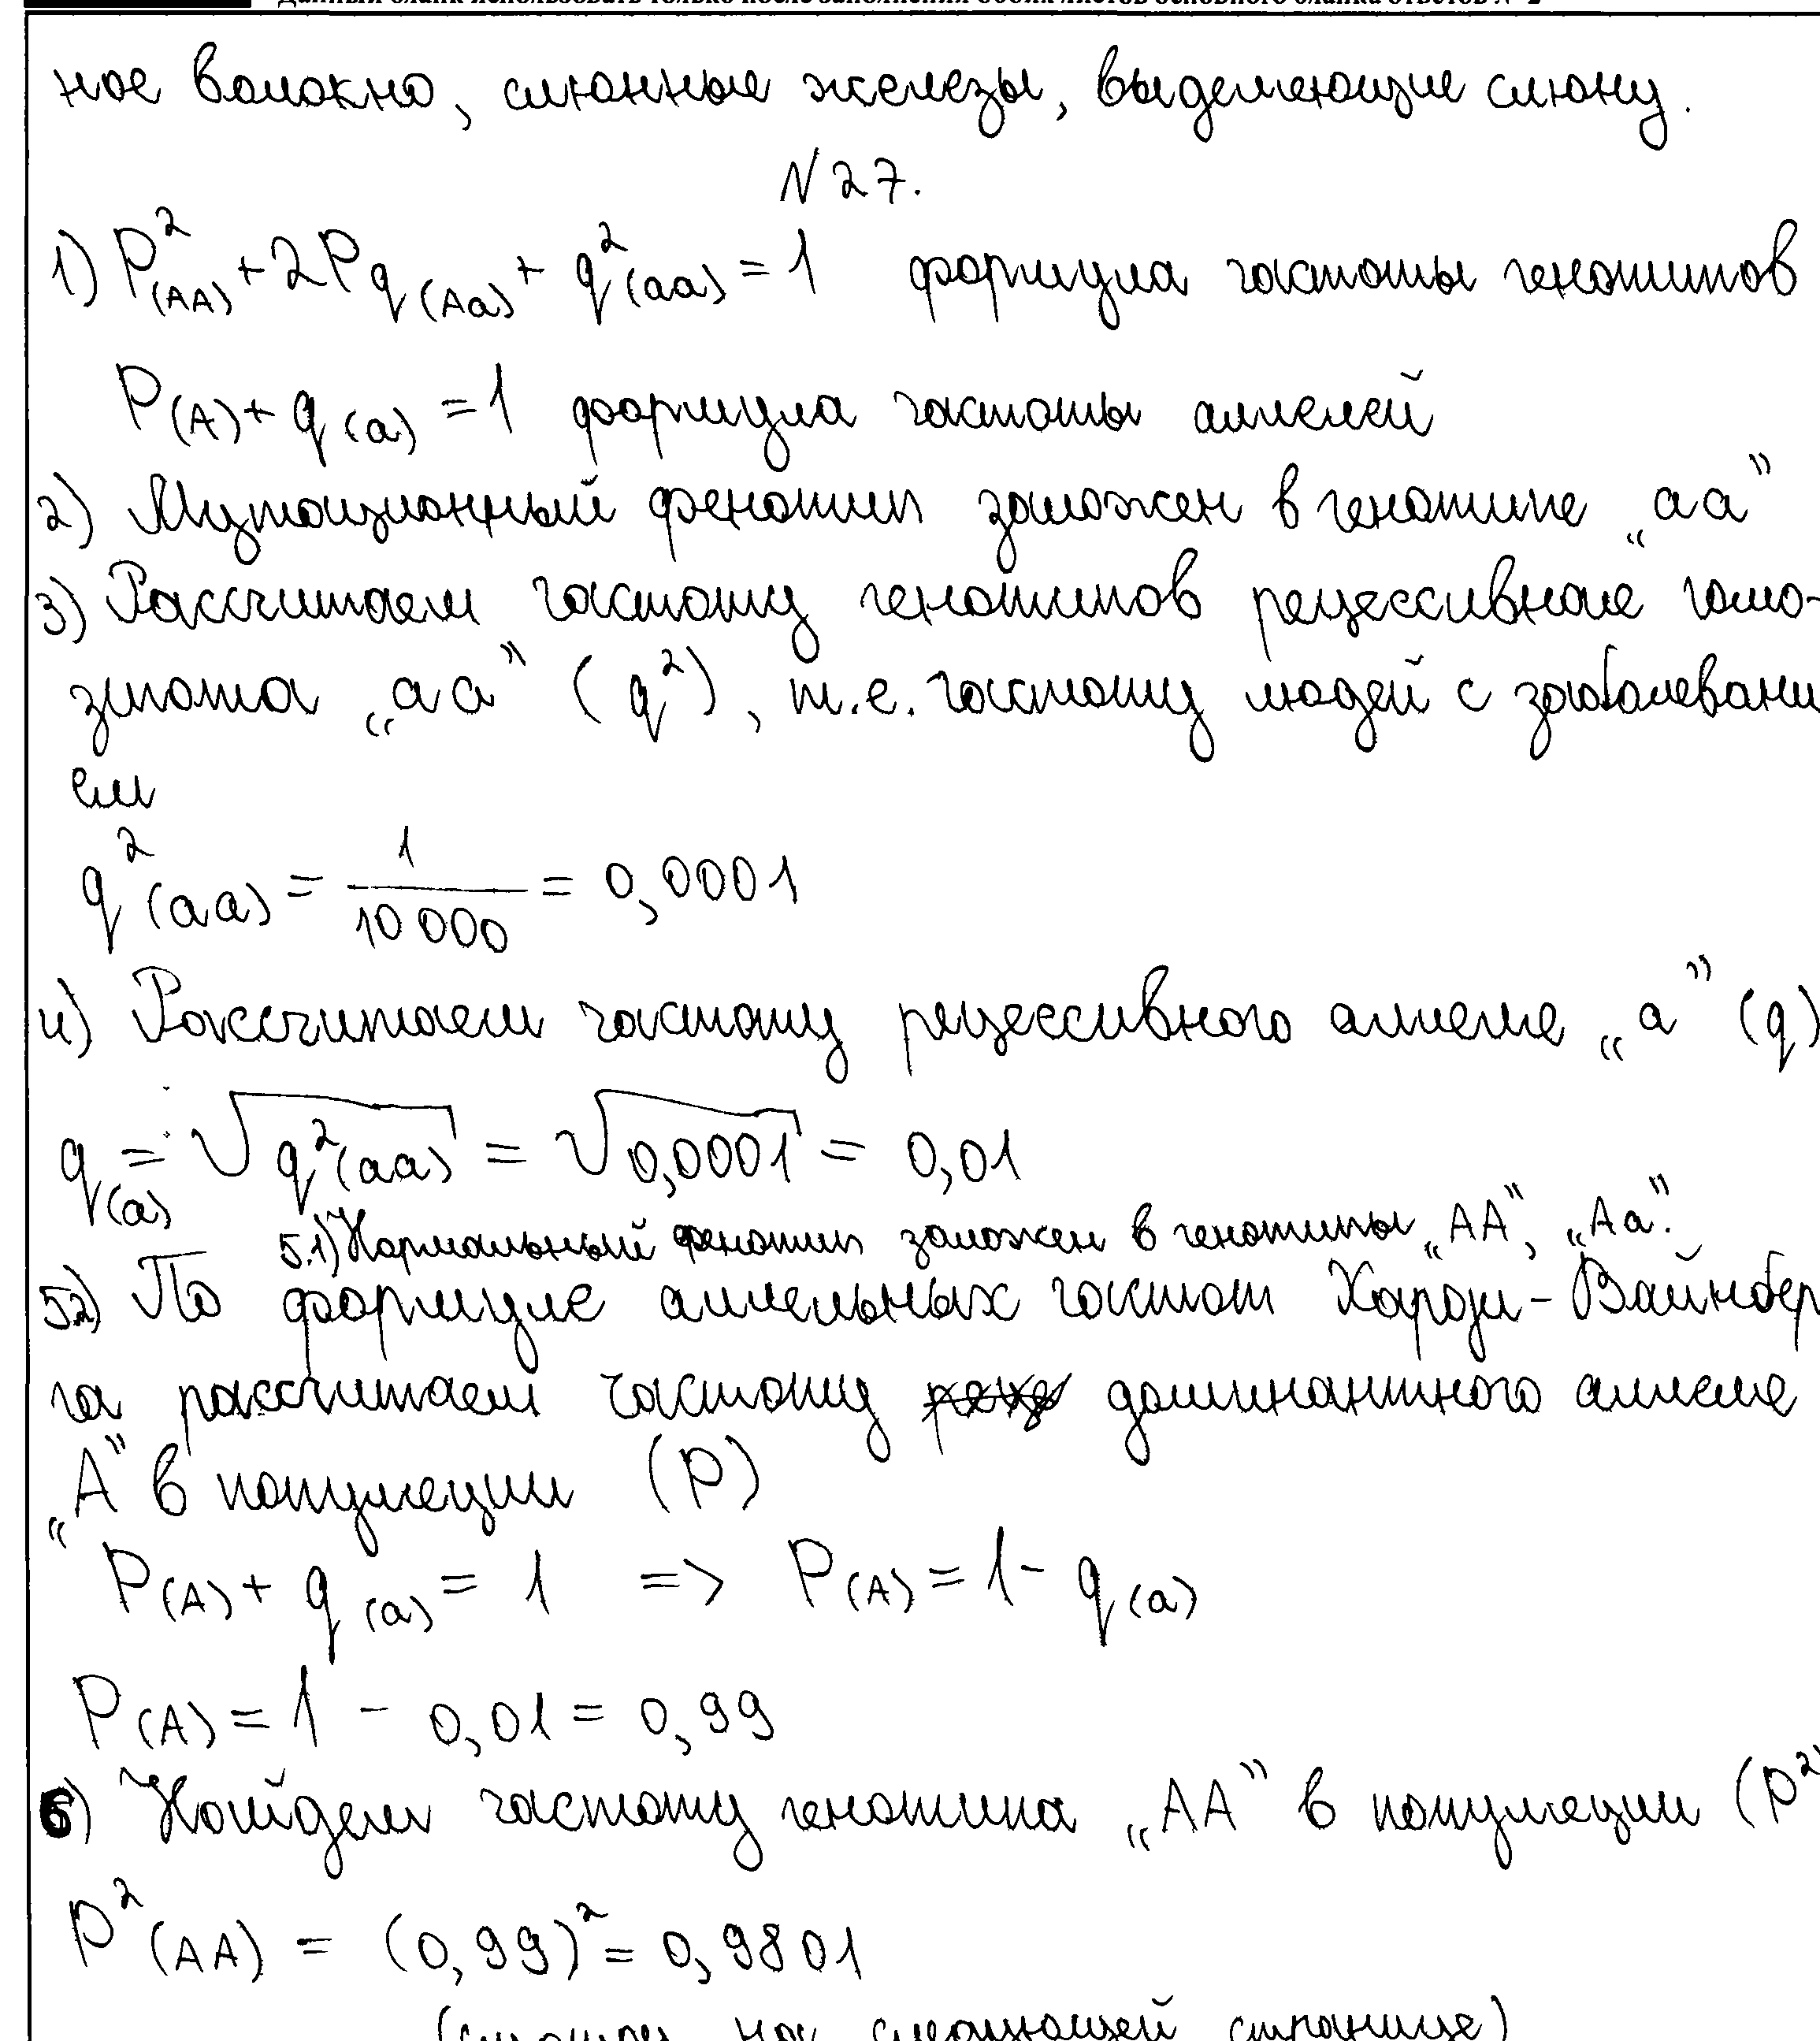 Данный бланк использовать только после заполнения обоих листов основного бланка ответов № 2
ное волокно, слюнные железы, выделяющие слюну.
N 27.
1) P²(AA) + 2Pq(Aa) + q²(aa) = 1 формула частоты генотипов
P(A) + q(a) = 1 формула частоты аллелей
2) Мутационный фенотип заложен в генотипе „aa”
3) Рассчитаем частоту генотипов рецессивное гомо-
зигота „aa” (q²), т.е. частоту людей с заболевани
ем
q²(aa) = 1/10 000 = 0,0001
4) Рассчитаем частоту рецессивного аллеля „a” (q)
q(a) = √q²(aa) = √0,0001 = 0,01
5.1) Нормальный фенотип заложен в генотипы „AA”, „Aa”.
5.2) По формуле аллельных частот Харди-Вайнбер
га рассчитаем частоту доминантного аллеля
„A” в популяции (P)
P(A) + q(a) = 1 => P(A) = 1 - q(a)
P(A) = 1 - 0,01 = 0,99
6) Найдем частоту генотипа „AA” в популяции (P²)
P²(AA) = (0,99)² = 0,9801
(смотри на следующей странице)